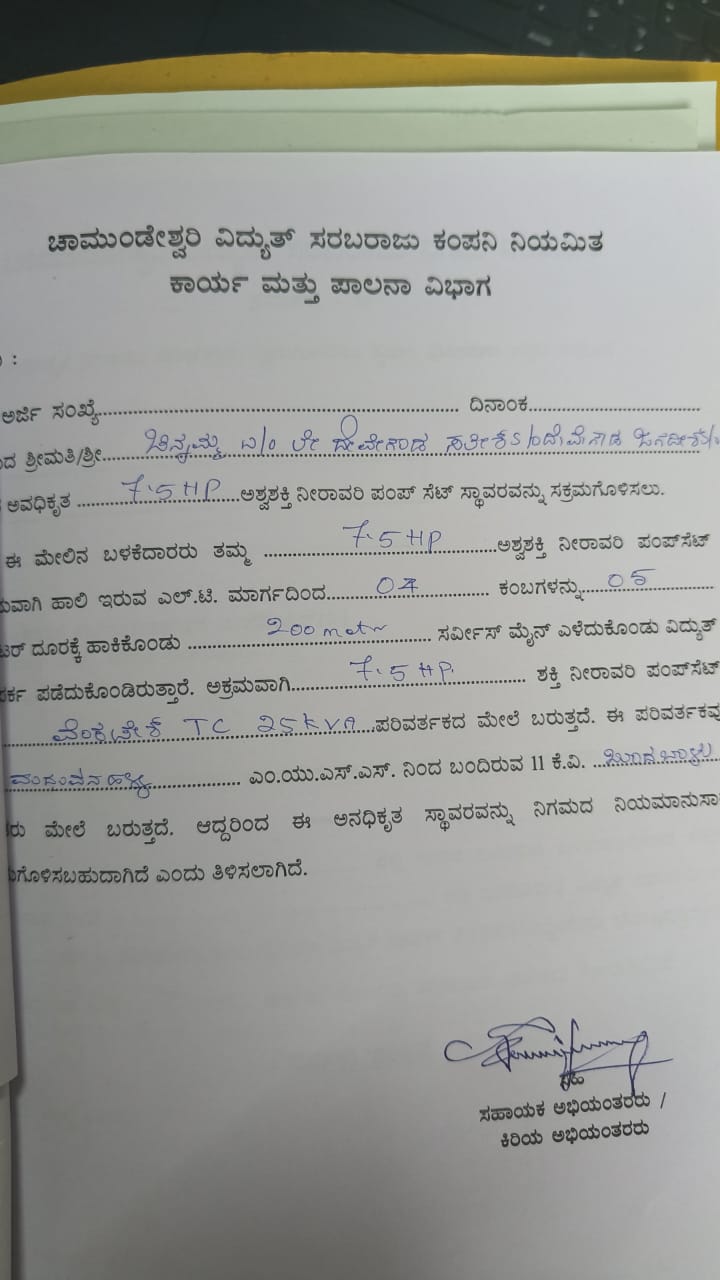 ಚಾಮುಂಡೇಶ್ವರಿ ವಿದ್ಯುತ್ ಸರಬರಾಜು ಕಂಪನಿ ನಿಯಮಿತ
ಕಾರ್ಯ ಮತ್ತು ಪಾಲನಾ ವಿಭಾಗ
:
ಅರ್ಜಿ ಸಂಖ್ಯೆ.......................... ದಿನಾಂಕ..........................
ದ ಶ್ರೀಮತಿ/ಶ್ರೀ.... ಚಿನ್ನಮ್ಮ ಲೇ ದೇವೇಗೌಡ ಸತೀಶ S/o ದೇವೇಗೌಡ
ಅವಧಿಕೃತ .......... 7.5 HP ....ಅಶ್ವಶಕ್ತಿ ನೀರಾವರಿ ಪಂಪ್ ಸೆಟ್ ಸ್ಥಾವರವನ್ನು ಸಕ್ರಮಗೊಳಿಸಲು.
ಈ ಮೇಲಿನ ಬಳಕೆದಾರರು ತಮ್ಮ .......... 7.5 HP ..........ಅಶ್ವಶಕ್ತಿ ನೀರಾವರಿ ಪಂಪ್‌ಸೆಟ್
ವಾಗಿ ಹಾಲಿ ಇರುವ ಎಲ್.ಟಿ. ಮಾರ್ಗದಿಂದ.......... 04 .......... ಕಂಬಗಳನ್ನು.... 05 ..........
ಟರ್ ದೂರಕ್ಕೆ ಹಾಕಿಕೊಂಡು .......... 200 metr .......... ಸರ್ವೀಸ್ ಮೈನ್ ಎಳೆದುಕೊಂಡು ವಿದ್ಯುತ್
ಪಡೆದುಕೊಂಡಿರುತ್ತಾರೆ. ಅಕ್ರಮವಾಗಿ.......... 7.5 HP. .......... ಶಕ್ತಿ ನೀರಾವರಿ ಪಂಪ್‌ಸೆಟ್
.......... ವೆಂಕಟೇಶ್ TC 25 KVA ....ಪರಿವರ್ತಕದ ಮೇಲೆ ಬರುತ್ತದೆ. ಈ ಪರಿವರ್ತಕವು
.......... ಎಂ.ಯು.ಎಸ್.ಎಸ್. ನಿಂದ ಬಂದಿರುವ 11 ಕೆ.ವಿ. ....
ಮೇಲೆ ಬರುತ್ತದೆ. ಆದ್ದರಿಂದ ಈ ಅನಧಿಕೃತ ಸ್ಥಾವರವನ್ನು ನಿಗಮದ ನಿಯಮಾನುಸಾ
ಗೊಳಿಸಬಹುದಾಗಿದೆ ಎಂದು ತಿಳಿಸಲಾಗಿದೆ.
ಸಹಿ
ಸಹಾಯಕ ಅಭಿಯಂತರರು /
ಕಿರಿಯ ಅಭಿಯಂತರರು